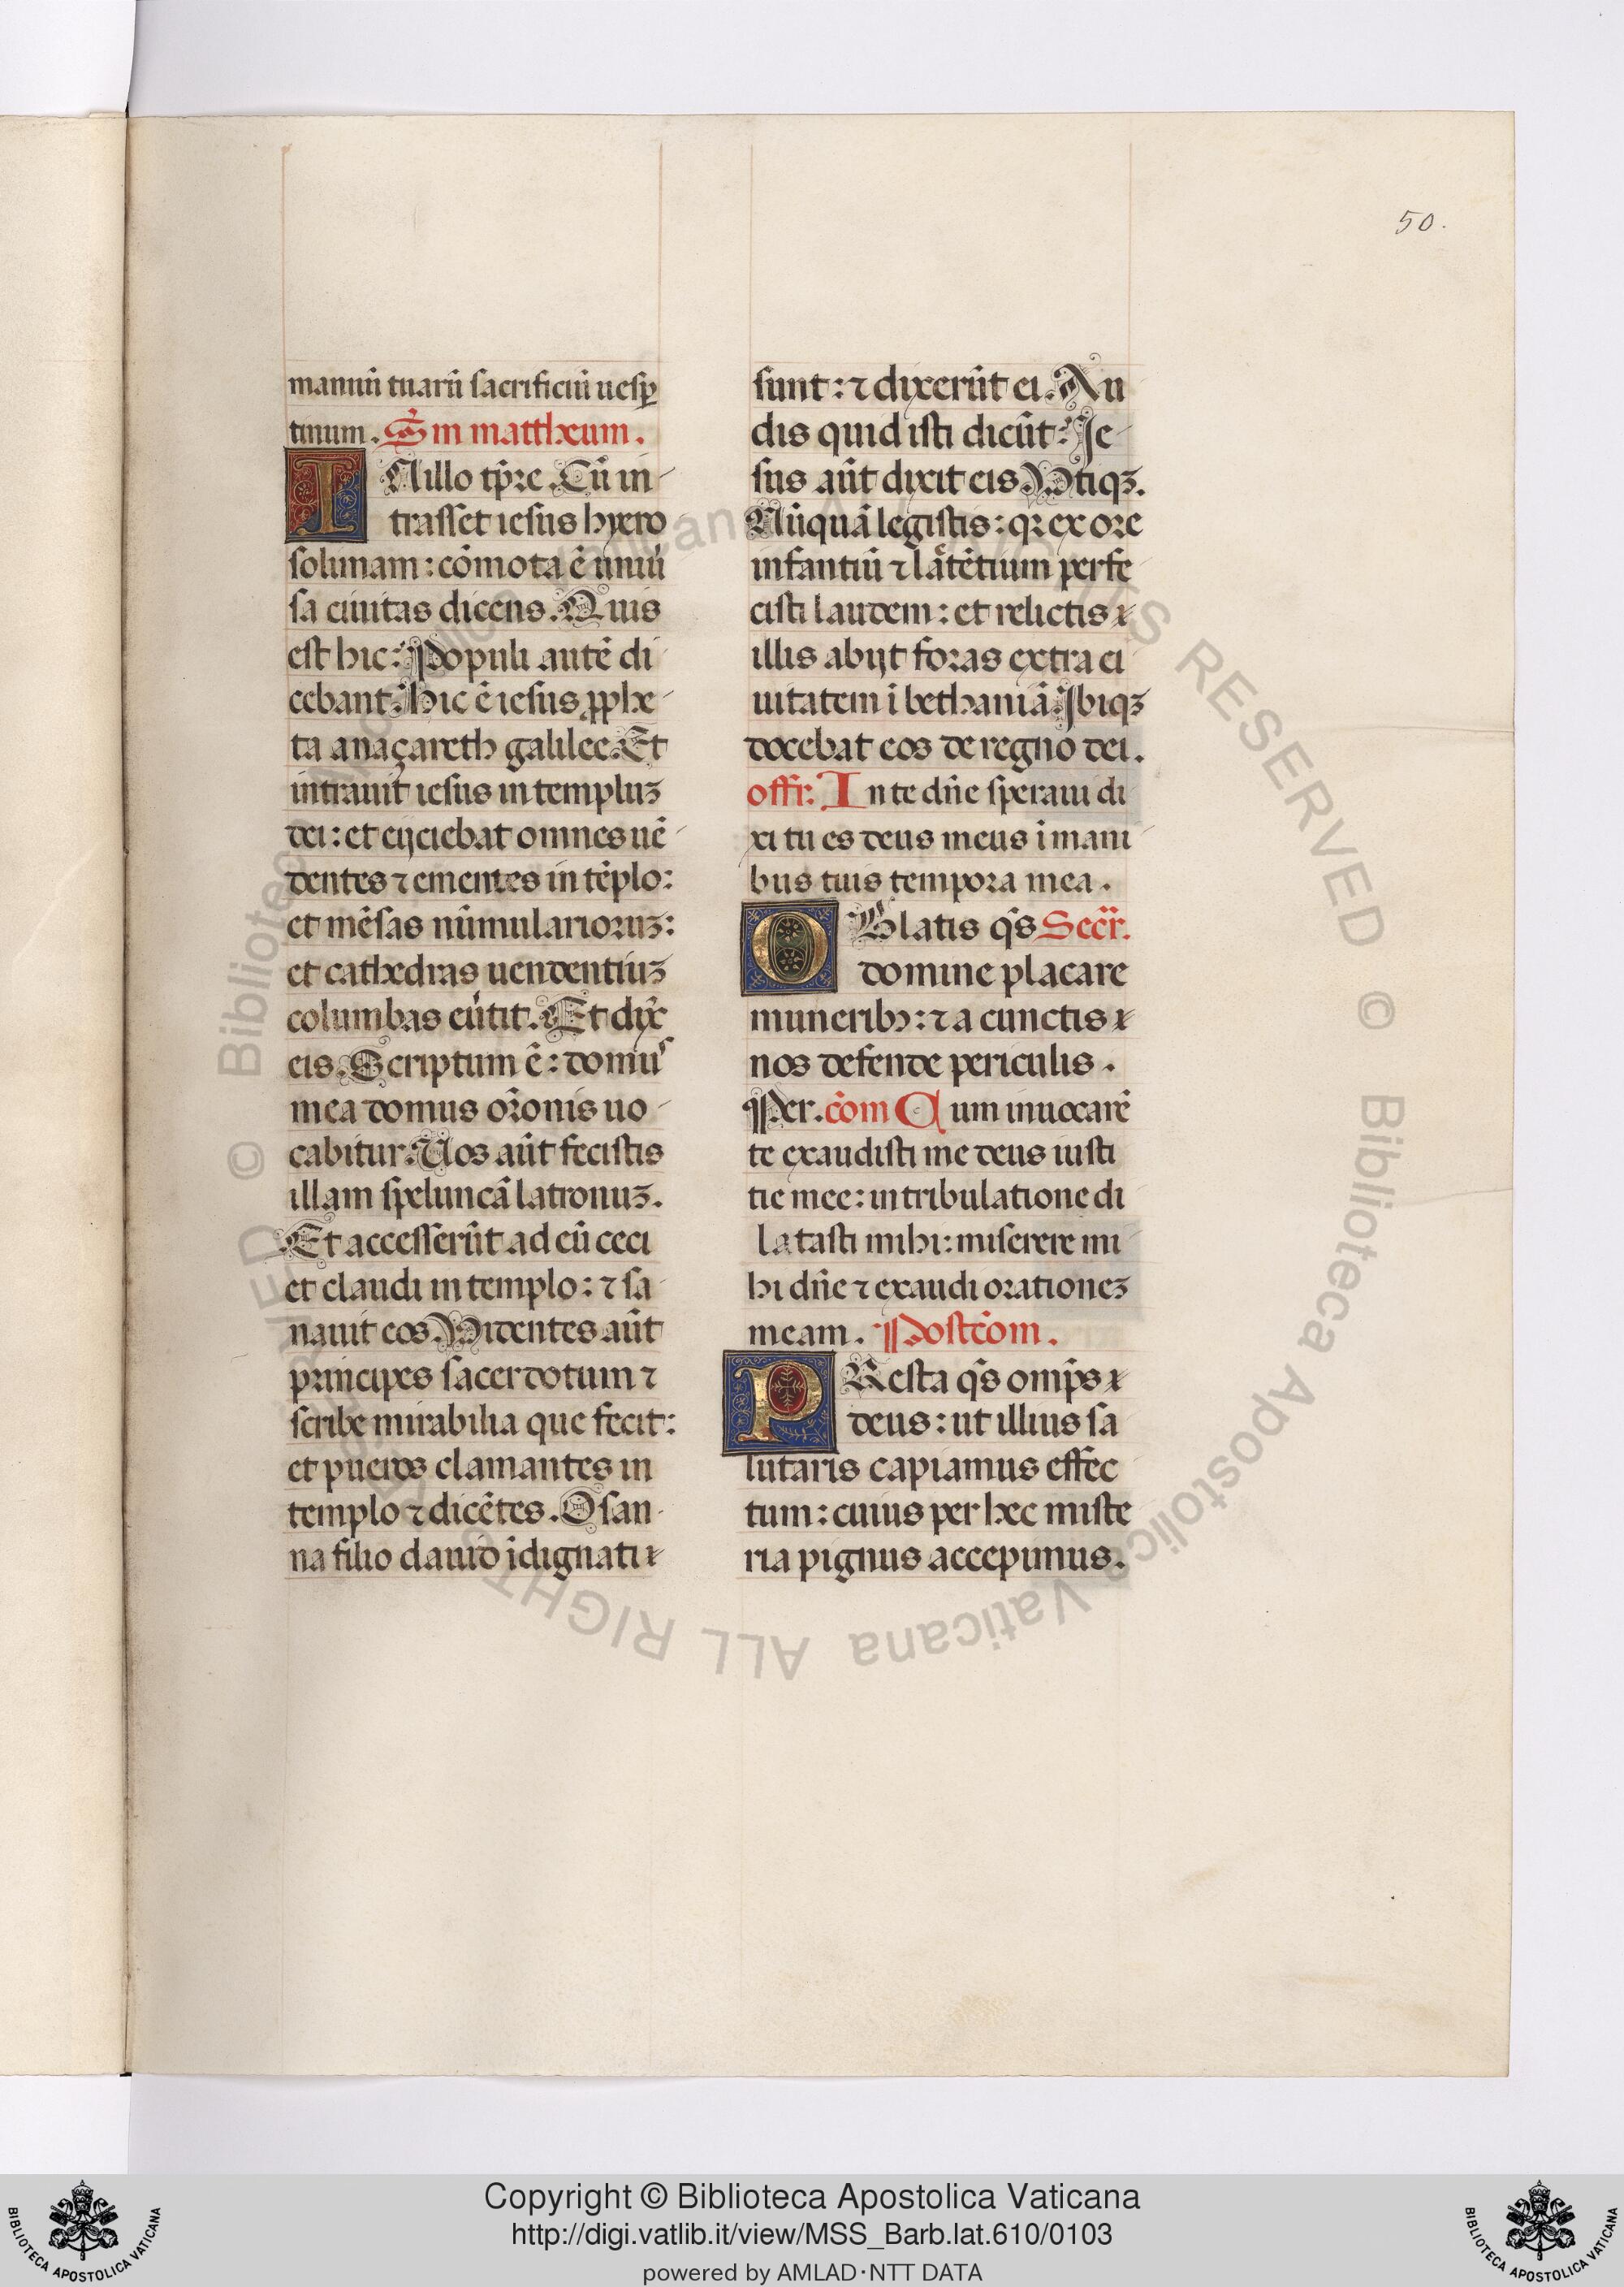 50.
manuũ tuarũ sacrificiũ uesꝑ
tinum. Sm̃ mattheum.
IN illo tp̃re. Cũ in-
trasset iesus hyero
solimam: cõmota ẽ uniũ
sa ciuitas dicens. Quis
est hic: Populi autẽ di
cebant. Hic ẽ iesus ꝓphe-
ta a naçareth galilee. Et
intrauit iesus in templuꝫ
dei: et eijciebat omnes uẽ-
dentes ⁊ ementes in tẽplo:
et mẽsas nũmularioruꝫ:
et cathedras uendentiuꝫ
columbas eũtit. Et dix̃
eis. Scriptum ẽ: domuˢ
mea domus or̃onis uo-
cabitur. Uos aũt fecistis
illam speluncã latronuꝫ.
Et accesserũt ad eũ ceci
et claudi in templo: ⁊ sa-
nauit eos. Videntes aũt
principes sacerdotum ⁊
scribe mirabilia que fecit:
et pueros clamantes in
templo ⁊ dicẽtes. Osan-
na filio dauid ĩdignati
sunt: ⁊ dixerũt ei. Au
dis quid isti dicũt: Je-
sus aũt dixit eis. Vtiqꝫ.
Nũquã legistis: qꝛ ex ore
infantiũ ⁊ lãtẽtium perfe
cisti laudem: et relictis
illis abijt foras extra ci
uitatem ĩ bethaniã. Ibiqꝫ
docebat eos de regno dei.
offr: In te dñe speraui di
xi tu es deus meus ĩ mani-
bus tuis tempora mea.
OBlatis q̃s Secr̃.
domine placare
muneribꝫ: ⁊ a cunctis
nos defende periculis.
Per. cõm Cum inuocarẽ
te exaudisti me deus iusti
tie mee: in tribulatione di
latasti mihi: miserere mi
hi dñe ⁊ exaudi orationeꝫ
meam. Postcõm.
PResta q̃s omp̃s
deus: ut illius sa
lutaris capiamus effec
tum: cuius per hec miste
ria pignus accepimus.
© Biblioteca Apostolica Vaticana ALL RIGHTS RESERVED © Biblioteca Apostolica Vaticana ALL RIGHTS RESERVED
Copyright © Biblioteca Apostolica Vaticana
http://digi.vatlib.it/view/MSS_Barb.lat.610/0103
powered by AMLAD·NTT DATA
BIBLIOTECA APOSTOLICA VATICANA
BIBLIOTECA APOSTOLICA VATICANA